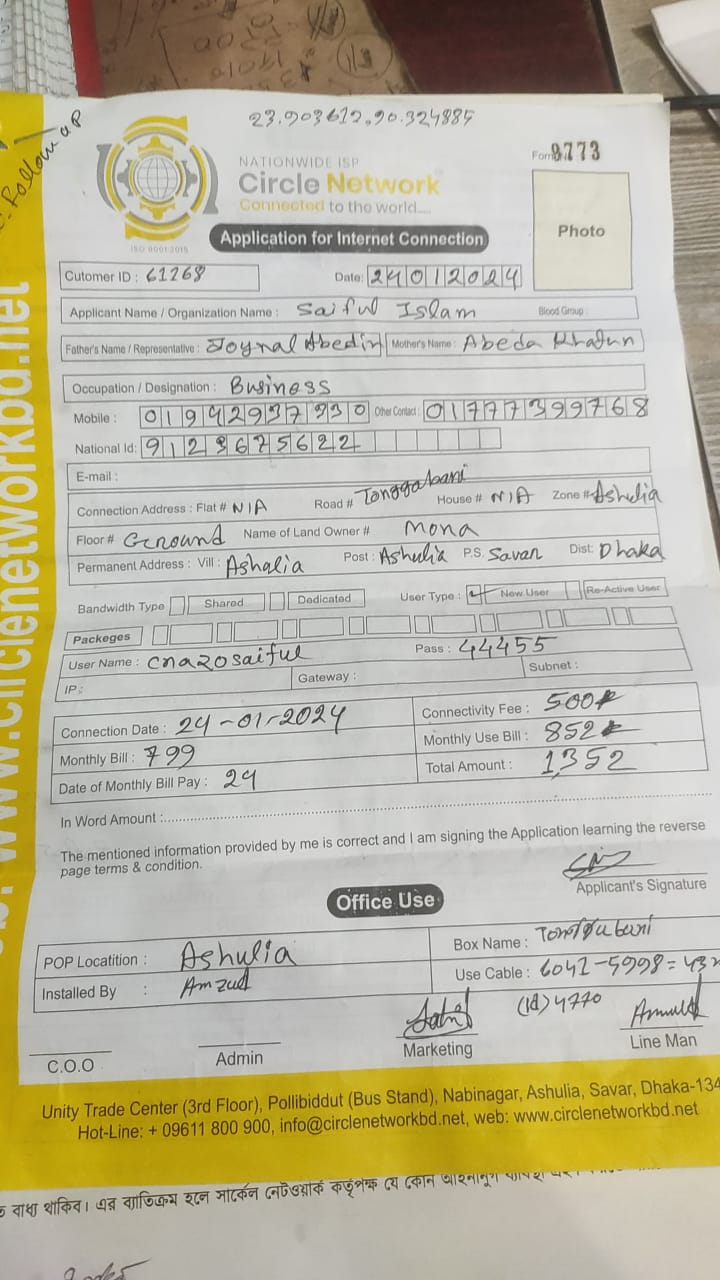 23.903612,90.324885
Follow up
NATIONWIDE ISP
Circle Network
Connected to the world....
ISO 9001:2015
Form 9773
Photo
Application for Internet Connection
Cutomer ID : 61268 Date: 24012024
Applicant Name / Organization Name : Saiful Islam Blood Group :
Father's Name / Representative : Joynal Abedin Mother's Name : Abeda Khatun
Occupation / Designation : Business
Mobile : 01942937930 Other Contact : 01777399768
National Id: 9123675622
E-mail :
Connection Address : Flat # N/A Road # Tonggabari House # N/A Zone # Ashulia
Floor # Ground Name of Land Owner # Mona
Permanent Address : Vill : Ashulia Post : Ashulia P.S. Savar Dist: Dhaka
Bandwidth Type Shared Dedicated User Type : New User Re-Active User
Packeges
User Name : cna20saiful Pass : 44455
IP : Gateway : Subnet :
Connection Date : 24-01-2024 Connectivity Fee : 500
Monthly Bill : 799 Monthly Use Bill : 852
Date of Monthly Bill Pay : 24 Total Amount : 1352
In Word Amount :
The mentioned information provided by me is correct and I am signing the Application learning the reverse
page terms & condition.
Applicant's Signature
Office Use
POP Locatition : Ashulia Box Name : Tonggabari
Installed By : Amzad Use Cable : 6041-5998=43
(id) 4770
C.O.O Admin Marketing Line Man
Unity Trade Center (3rd Floor), Pollibiddut (Bus Stand), Nabinagar, Ashulia, Savar, Dhaka-134
Hot-Line: + 09611 800 900, info@circlenetworkbd.net, web: www.circlenetworkbd.net
www.circlenetworkbd.net
বাধ্য থাকিব। এর ব্যাতিক্রম হলে সার্কেল নেটওয়ার্ক কর্তৃপক্ষ যে কোন আইনানুগ